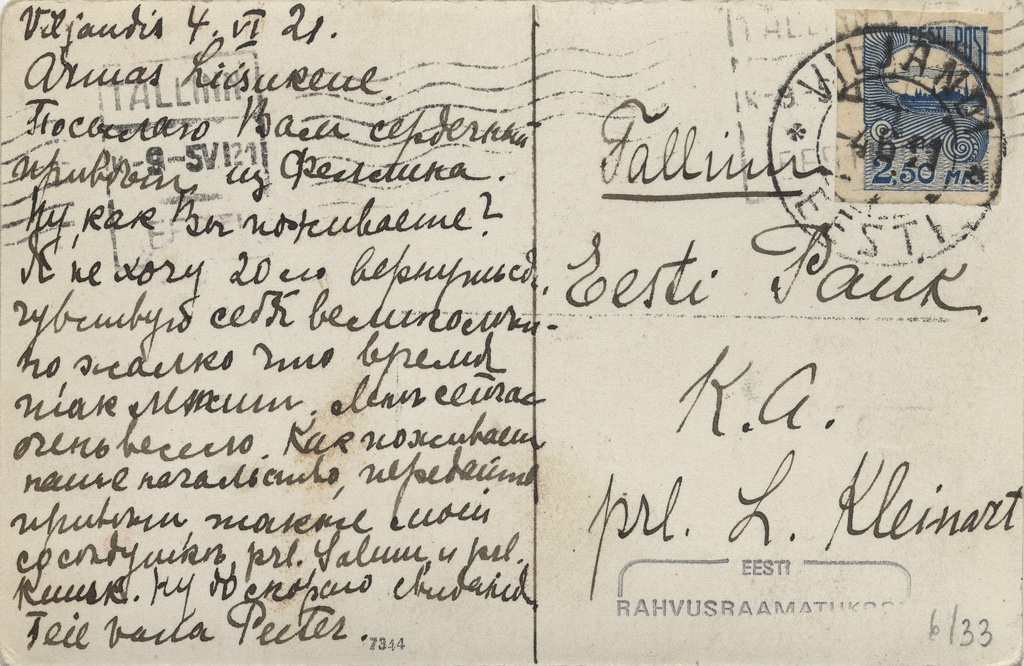 Viljandis 4. VI 21.
Armas Liisukene.
Посылаю Вам сердечный
привѣт из Феллина.
Ну, как Вы поживаете?
Я не хочу 20го вернуться,
чувствую себѣ великолѣпн-
но жалко что время
так бѣжит.
очень весело. Как поживает
наше начальство, передайте
привѣт также моей
сосѣдушкѣ, prl. Salum, и prl.
Ну до скораго свиданія
Teie vana Peeter.
7344
TALLINN
K-8-5VI21
EESTI
EESTI POST
2,50 MK.
VILJANDI
4 6 21
EESTI
Tallinn
Eesti Pank.
K.A.
prl. L. Kleinart
EESTI
RAHVUSRAAMATUKOGU
6/33